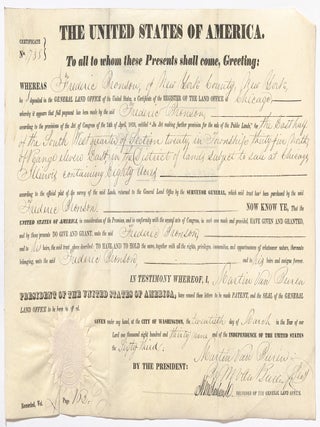 THE UNITED STATES OF AMERICA.
CERTIFICATE
No. 733
To all to whom these Presents shall come, Greeting:
WHEREAS Frederic Bronson, of New York County, New York,
ha deposited in the GENERAL LAND OFFICE of the United States, a Certificate of the REGISTER OF THE LAND OFFICE at Chicago
whereby it appears that full payment has been made by the said Frederic Bronson
according to the provisions of the Act of Congress of the 24th of April, 1820, entitled "An Act making further provision for the sale of the Public Lands," for the East half
of the South West quarter of Section twenty in Township thirty five North
of Range eleven East in the District of lands subject to sale at Chicago
Illinois containing Eighty acres
according to the official plat of the survey of the said Lands, returned to the General Land Office by the SURVEYOR GENERAL, which said tract has been purchased by the said
Frederic Bronson NOW KNOW YE, That the
UNITED STATES OF AMERICA, in consideration of the Premises, and in conformity with the several acts of Congress, in such case made and provided, HAVE GIVEN AND GRANTED,
and by these presents DO GIVE AND GRANT, unto the said Frederic Bronson
and to his heirs, the said tract above described: TO HAVE AND TO HOLD the same, together with all the rights, privileges, immunities, and appurtenances of whatsoever nature, thereunto
belonging, unto the said Frederic Bronson and to his heirs and assigns forever.
IN TESTIMONY WHEREOF, I, Martin Van Buren
PRESIDENT OF THE UNITED STATES OF AMERICA, have caused these letters to be made PATENT, and the SEAL of the GENERAL
LAND OFFICE to be hereunto affixed.
GIVEN under my hand, at the CITY OF WASHINGTON, the twentieth day of March in the Year of our
Lord one thousand eight hundred and thirty nine and of the INDEPENDENCE OF THE UNITED STATES
the Sixty third.
BY THE PRESIDENT: Martin Van Buren
By
RECORDER OF THE GENERAL LAND OFFICE.
Recorded, Vol. Page 163